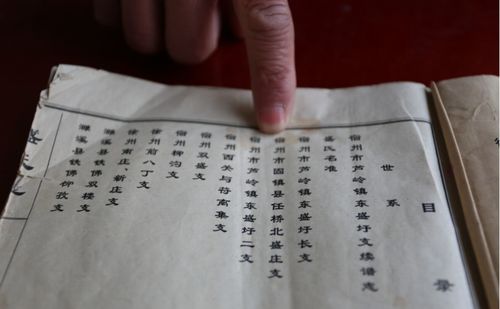 目录
世系
宿州市芦岭镇东盛圩支续谱志
盛氏名准
宿州市芦岭镇东盛圩长支
宿州市固镇县任桥北盛庄支
宿州市芦岭镇东盛圩二支
宿州西关与符离集支
宿州双盛支
宿州稗沟支
徐州前八丁支
徐州南庄、新庄支
濉溪县铁佛双楼支
濉溪县铁佛仰孜支